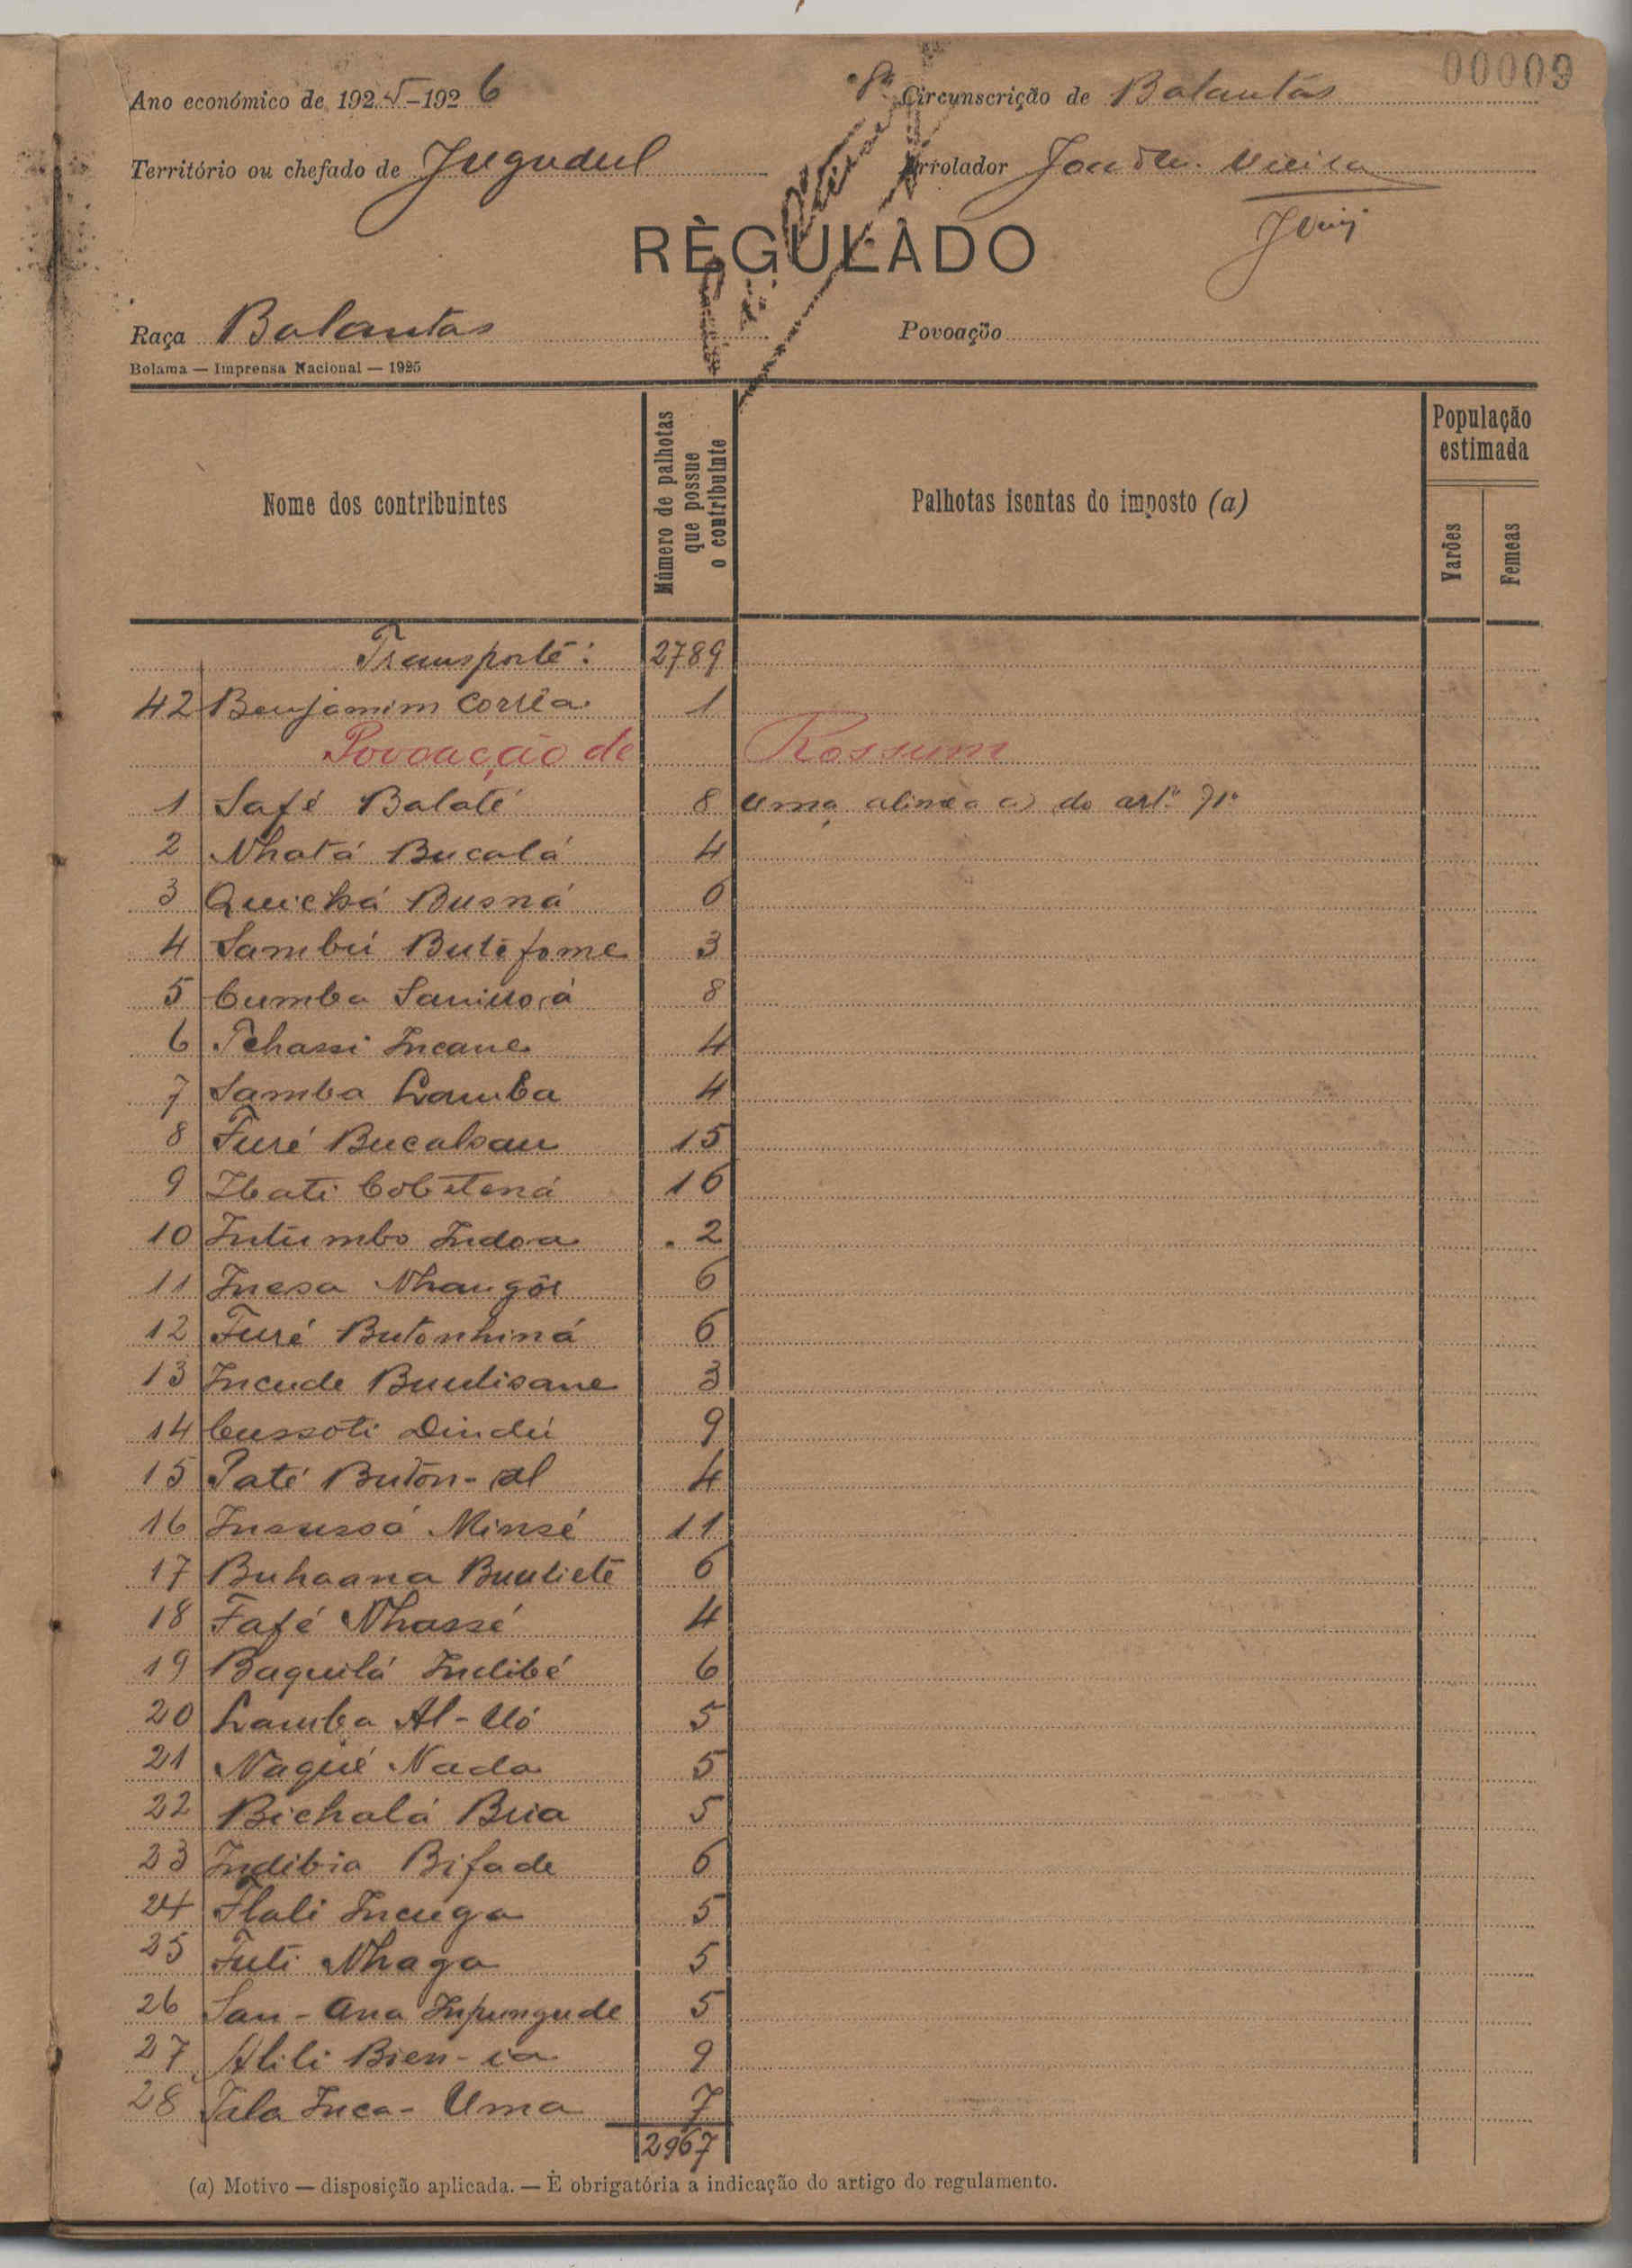 00009
Ano económico de 1925-1926 Circunscrição de Balantas
Território ou chefado de Jugudul Arrolador Vieira
REGULADO
Raça Balantas Povoação
Bolama — Imprensa Nacional — 1925
Nome dos contribuintes Número de palhotas que possue o contribuinte Palhotas isentas do imposto (a) População estimada
Varões Femeas
Transporte: 2789
42 Benjamim Corrêa 1
Povoacção de Rossum
1 Safé Balaté 8 uma alinea a) do artº 71º
2 Nhatá Bucalá 4
3 Quichá Busná 6
4 Sambú Butéfome 3
5 Cumba 8
6 Tchassi Incane 4
7 Samba Lamba 4
8 Furé Bucalsau 15
9 16
10 Intumbo Indoa 2
11 Inesa Nhangôr 6
12 Furé Butonhiná 6
13 Incude 3
14 Cussoti Dindú 9
15 Paté Buton-al 4
16 Insussá Minsé 11
17 Buhaana 6
18 Fafé Nhassé 4
19 Baquilá Indibé 6
20 Lamba Al-Uó 5
21 Naqué Nada 5
22 Bichalá Bria 5
23 Indibia Bifade 6
24 Incuga 5
25 Futi Nhaga 5
26 San-Ana Inpungude 5
27 Alili Bien-ia 9
28 Tala Inca-Uma 7
2967
(a) Motivo — disposição aplicada. — É obrigatória a indicação do artigo do regulamento.